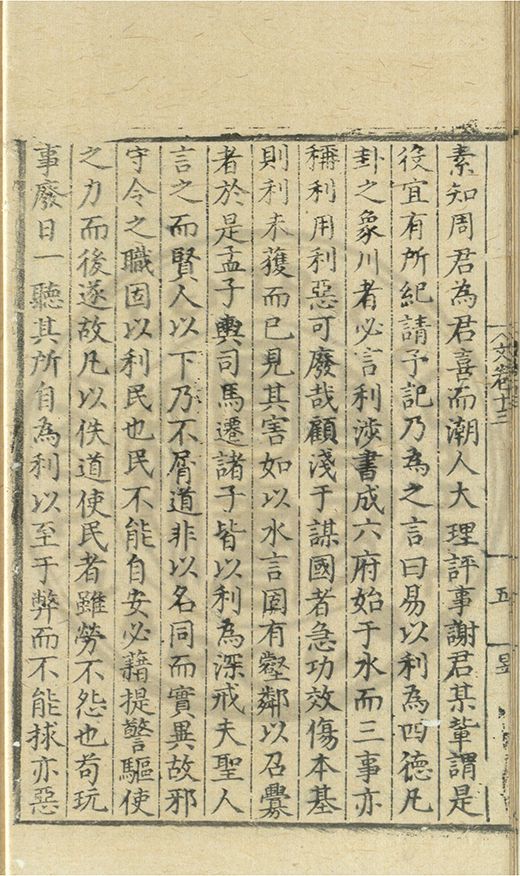 文卷十三
五
素知周君為君喜而潮人大理評事謝君某輩謂是
役宜有所紀請予記乃為之言曰易以利為四德凡
卦之象川者必言利涉書成六府始于水而三事亦
稱利用利惡可廢哉顧淺于謀國者急功效傷本基
則利未獲而已見其害如以水言固有壑鄰以召釁
者於是孟子輿司馬遷諸子皆以利為深戒夫聖人
言之而賢人以下乃不屑道非以名同而實異故邪
守令之職固以利民也民不能自安必藉提警驅使
之力而後遂故凡以佚道使民者雖勞不怨也苟玩
事廢日一聽其所自為利以至于弊而不能捄亦惡